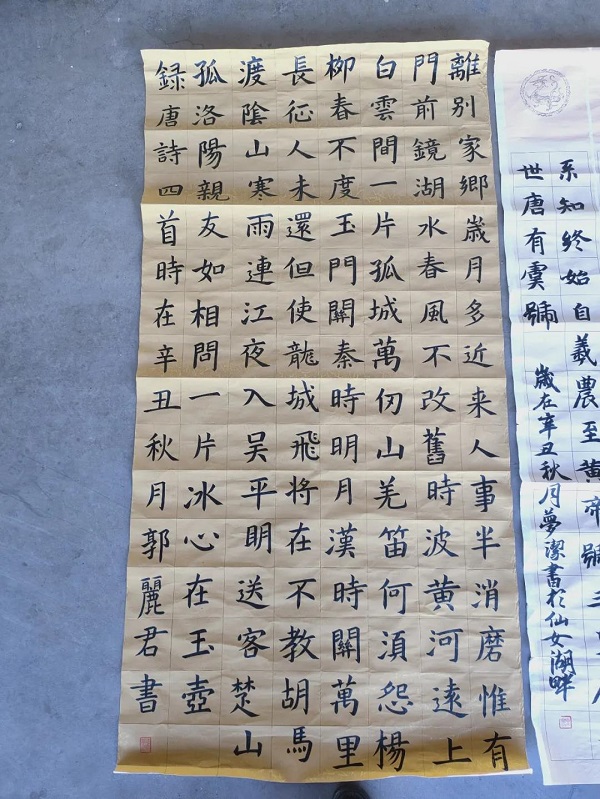 系知終始自羲農至黄帝號三
世唐有虞號
歲在辛丑秋月夢潔書扵仙女湖畔
離别家鄉歲月多近来人事半消磨惟有
門前鏡湖水春風不改舊時波黄河遠上
白雲間一片孤城萬仞山羌笛何湏怨楊
柳春不度玉門關秦時明月漢時關萬里
長征人未還但使龍城飛將在不教胡馬
渡陰山寒雨連江夜入吴平明送客楚山
孤洛陽親友如相問一片冰心在玉壺
録唐詩四首時在辛丑秋月郭麗君書